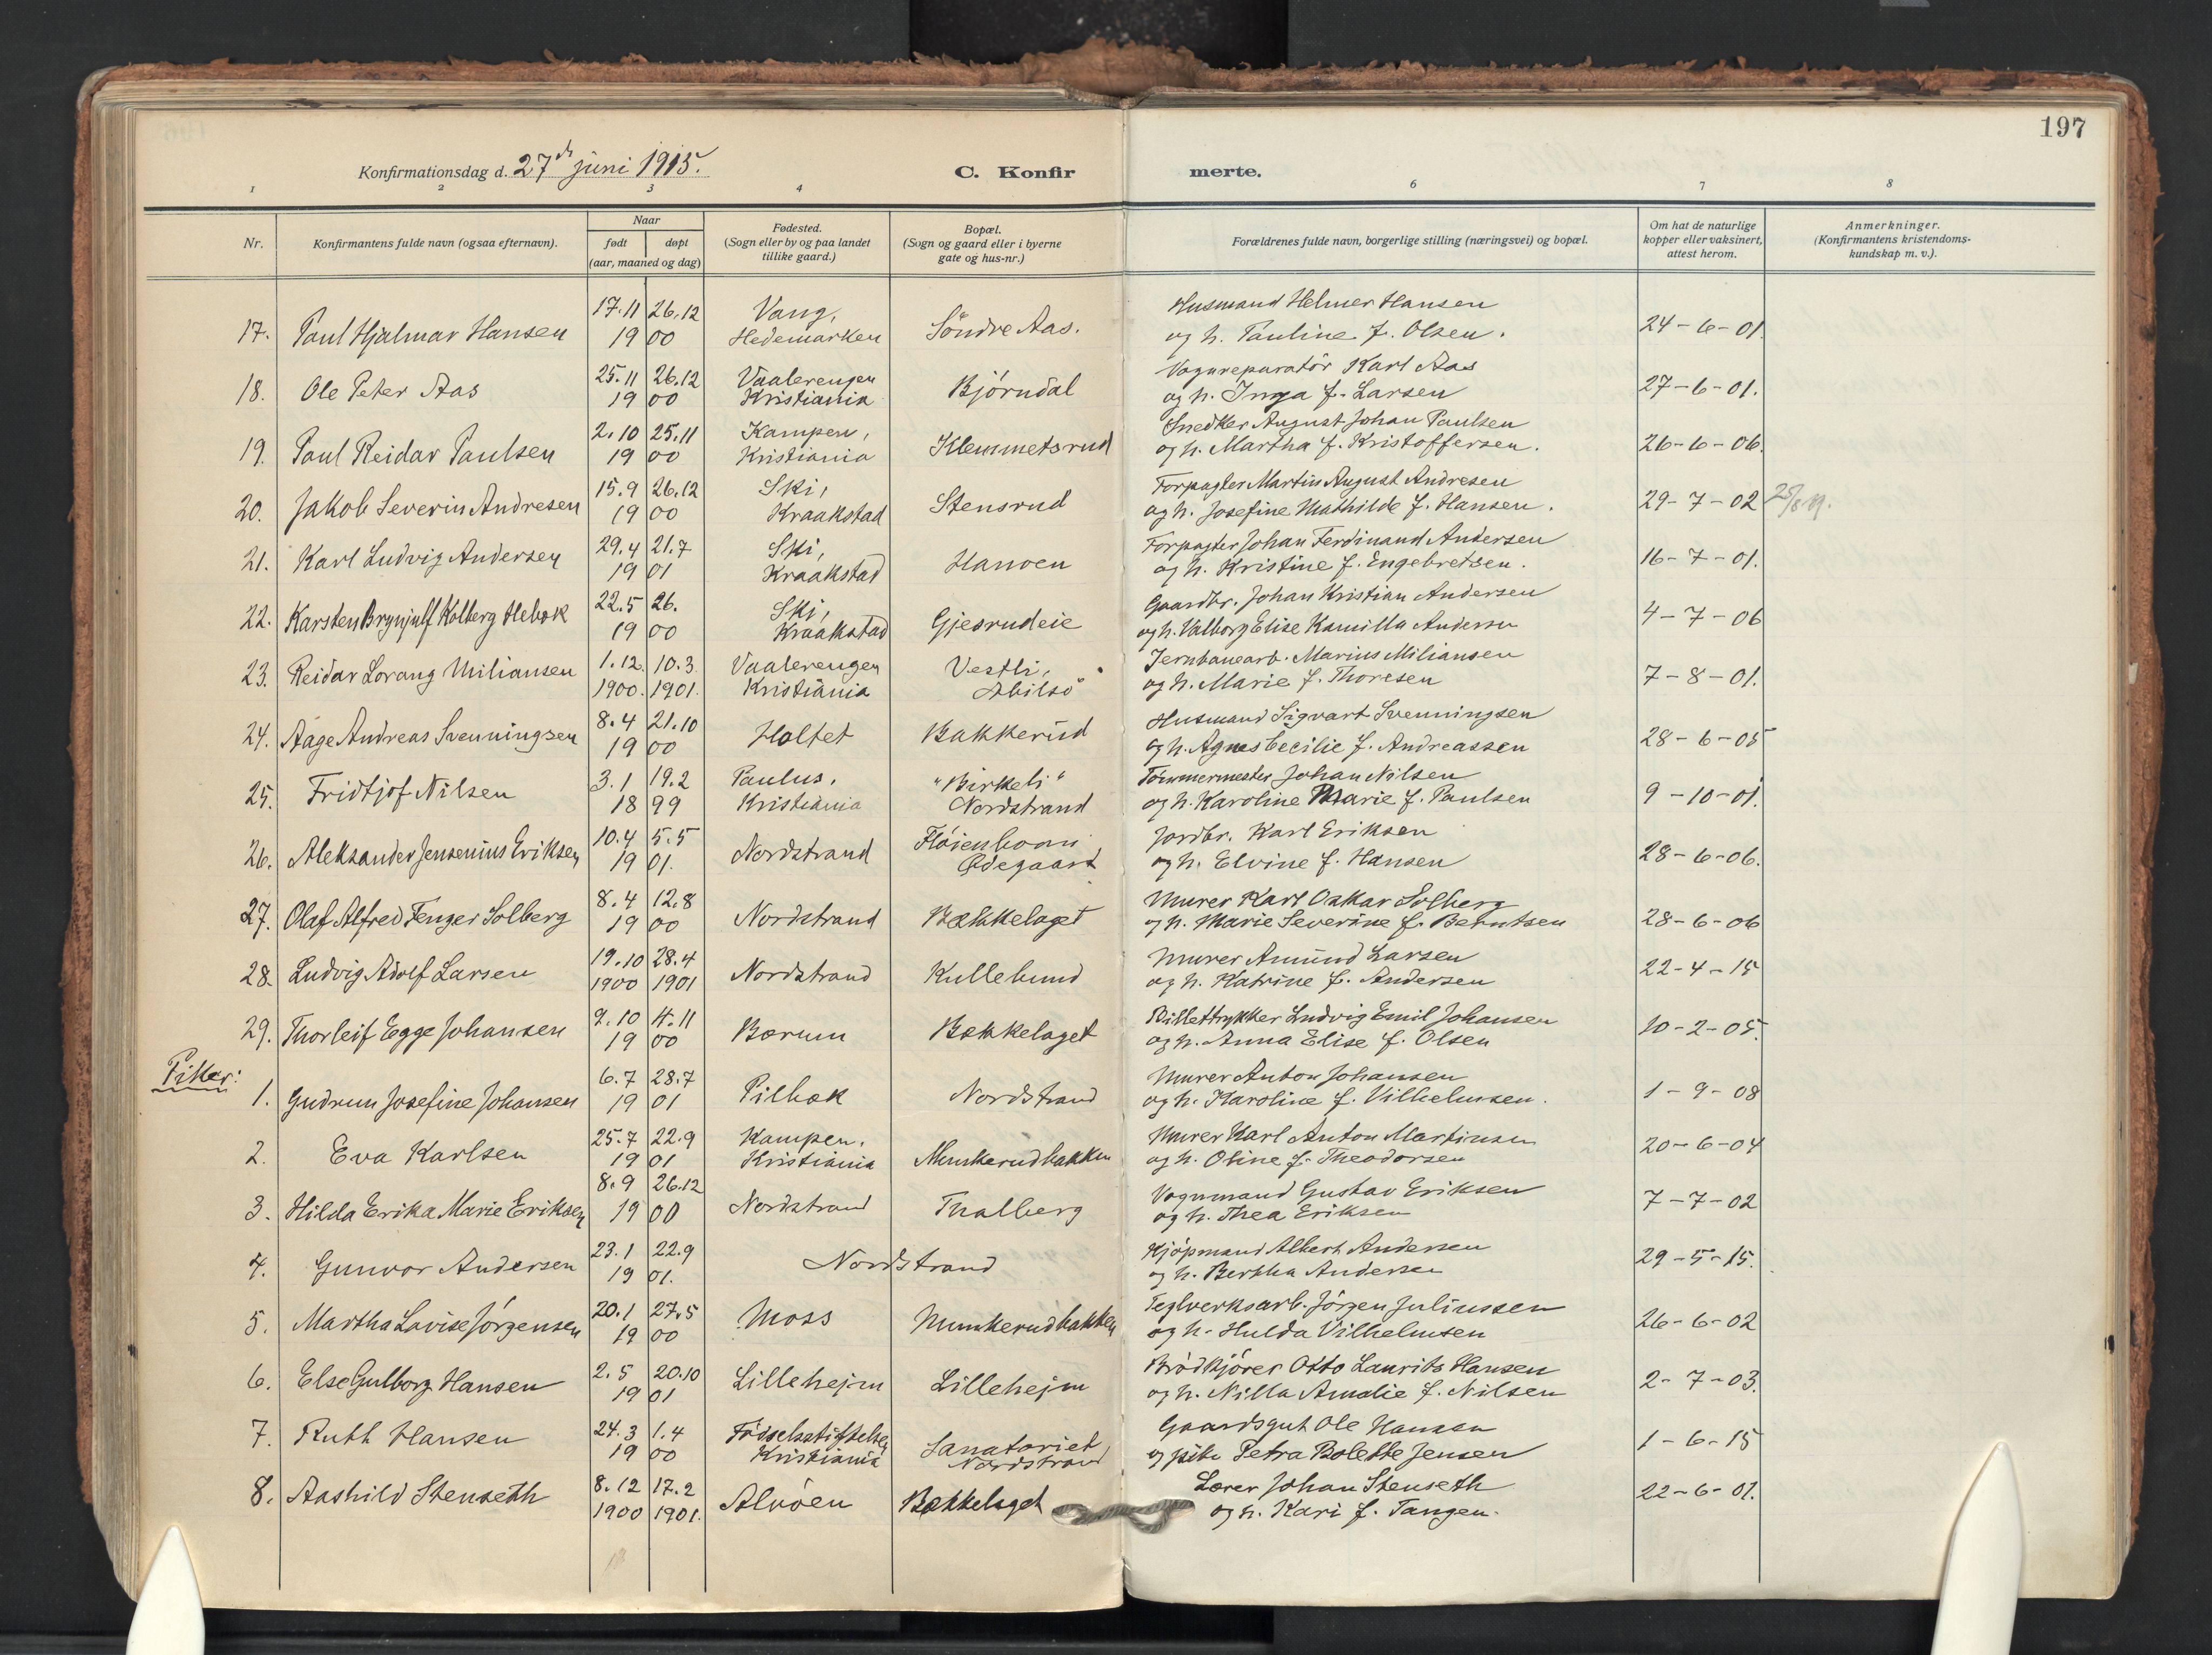 197
Konfirmationsdag d. 27de juni 1915.
C. Konfir merte.
1 2 3 4 6 7 8
Nr.
Konfirmantens fulde navn (ogsaa efternavn).
Naar
født døpt
(aar, maaned og dag)
Fødested.
(Sogn eller by og paa landet
tillike gaard.)
Bopæl.
(Sogn og gaard eller i byerne
gate og hus-nr.)
Forældrenes fulde navn, borgerlige stilling (næringsvei) og bopæl.
Om hat de naturlige
kopper eller vaksinert,
attest herom.
Anmerkninger.
(Konfirmantens kristendoms-
kundskap m. v.).
17.11 26.12 Vang, Husmand Helmer Hansen
17. Paul Hjalmar Hansen 19 00 Hedemarken Søndre Aas. og h. Pauline f. Olsen. 24-6-01.
25.11 26.12 Vaalerengen Vognreparatör Karl Aas
18. Ole Peter Aas 19 00 Kristiania Bjørndal og h. Inga f. Larsen 27-6-01.
2.10 25.11 Kampen, Snedker August Johan Paulsen
19. Paul Reidar Paulsen 19 00 Kristiania Klemmetsrud og h. Martha f. Kristoffersen. 26-6-06.
15.9 26.12 Ski, Forpagter Martin August Andresen
20. Jakob Severin Andresen 19 00 Kraakstad Stensrud og h. Josefine Mathilde f. Hansen. 29-7-02
29.4 21.7 Ski, Forpagter Johan Ferdinand Andersen
21. Karl Ludvig Andersen 19 01 Kraakstad Hanoen og h. Kristine f. Engebretsen. 16-7-01.
22.5 26. Ski, Gaardbr. Johan Kristian Andersen
22. Karsten Brynjulf Kolberg Hebæk 19 00 Kraakstad Gjesrudeie og h. Valborg Elise Kamilla Andersen 4-7-06
1.12. 10.3. Vaalerengen Vestli, Jernbanearb. Marius Miliansen
23. Reidar Lorang Miliansen 1900. 1901. Kristiania Abilsö og h. Marie f. Thoresen 7-8-01.
8.4 21.10 Husmand Sigvart Svenningsen
24. Aage Andreas Svenningsen 19 00 Holtet Bakkerud og h. Agnes Cecilie f. Andreassen 28-6-05
3.1 19.2 Paulus, "Birkeli" Tömmermester Johan Nilsen
25. Fridtjof Nilsen 18 99 Kristiania Nordstrand og h. Karoline Marie f. Paulsen 9-10-01.
10.4 5.5 Fløienbom Jordbr. Karl Eriksen
26. Aleksander Jensenius Eriksen 19 01. Nordstrand Ødegaard og h. Elvine f. Hansen 28-6-06.
8.4 12.8 Murer Karl Oskar Solberg
27. Olaf Alfred Fenger Solberg 19 00 Nordstrand Bækkelaget og h. Marie Severine f. Berntsen 28-6-06
19.10 28.4 Murer Amund Larsen
28. Ludvig Adolf Larsen 1900 1901 Nordstrand Kullebund og h. Katrine f. Andersen 22-4-15
9.10 4.11 Billettrykker Ludvig Emil Johansen
29. Thorleif Egge Johansen 19 00 Bærum Bækkelaget og h. Anna Elise f. Olsen 10-2-05.
Piker:
6.7 28.7 Murer Anton Johansen
1. Gudrun Josefine Johansen 19 01 Pilbæk Nordstrand og h. Karoline f. Vilhelmsen. 1-9-08
25.7 22.9 Kampen, Murer Karl Anton Martinsen
2. Eva Karlsen 19 01 Kristiania Munkerudbakken og h. Oline f. Theodorsen 20-6-04
8.9 26.12 Vognmand Gustav Eriksen
3. Hilda Erika Marie Eriksen 19 00 Nordstrand Thalberg og h. Thea Eriksen 7-7-02
23.1 22.9 Kjøpmand Albert Andersen
4. Gunvor Andersen 19 01. Nordstrand og h. Bertha Andersen 29-5-15.
20.1 27.5 Teglverksarb. Jörgen Juliussen
5. Martha Lovise Jörgensen 19 00 Moss Munkerudbakken og h. Hulda Vilhelmsen 26-6-02
2.5 20.10 Brödkjörer Otto Laurits Hansen
6. Else Gulborg Hansen 19 01 Lillehejm Lillehejm og h. Nilla Amalie f. Nilsen 2-7-03.
24.3 1.4 Födselsstiftelsen Sanatoriet, Gaardsgut Ole Hansen
7. Ruth Hansen 19 00 Kristiania Nordstrand og pike Petra Bolette Jensen 1-6-15
8.12 17.2 Lærer Johan Stenseth
8. Aashild Stenseth 1900 1901. Alvöen Bækkelaget og h. Kari f. Tangen. 22-6-01.